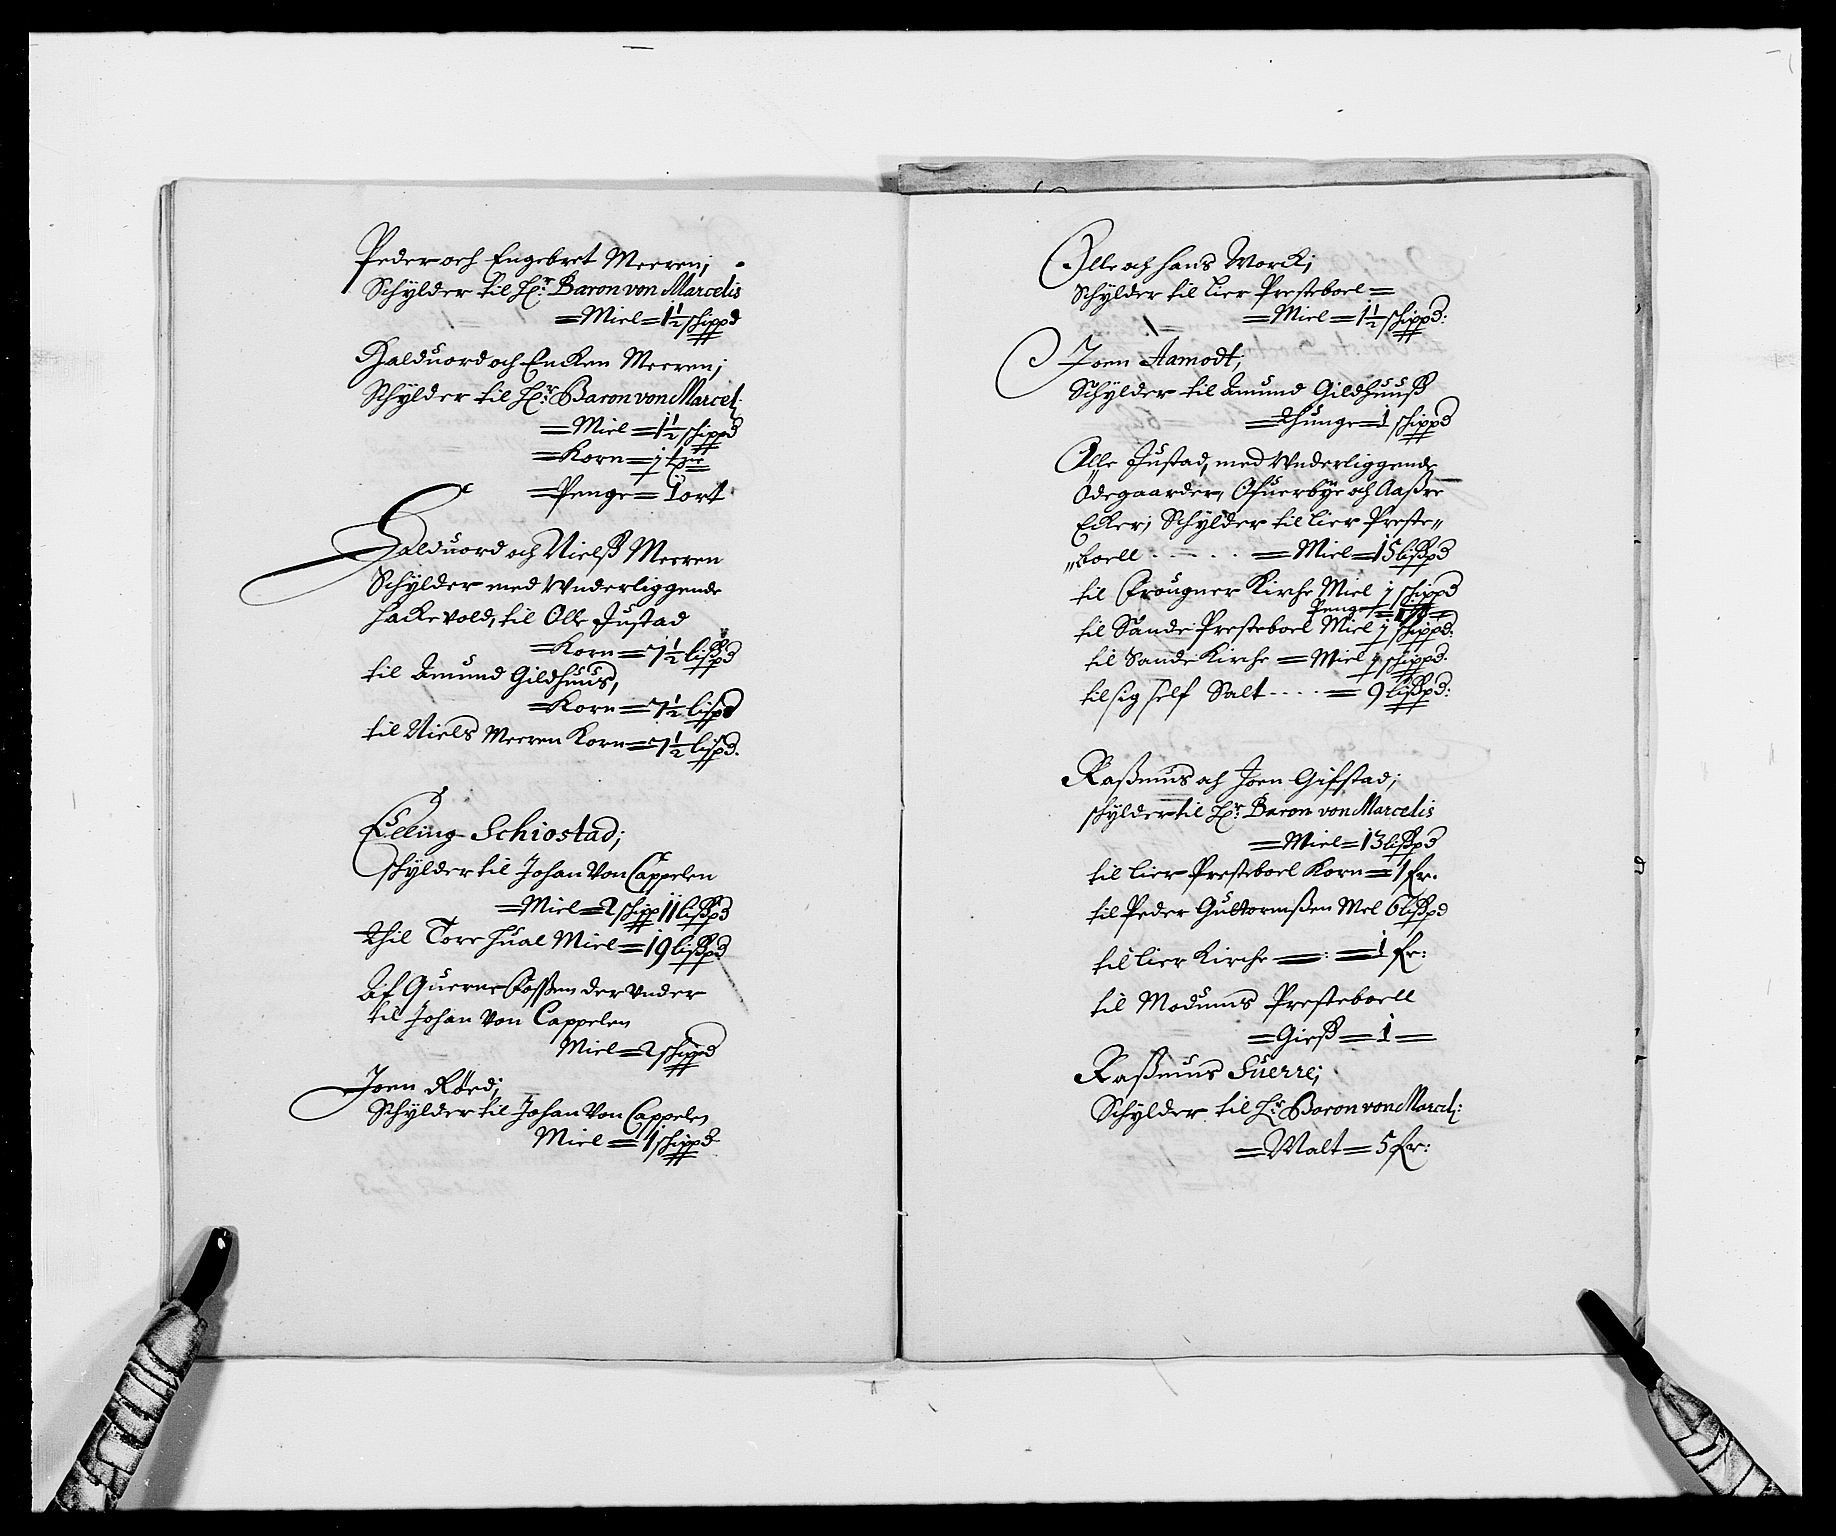 Peder och Engebret Meeren;
Schÿlder til Hr: Baron von Marcelis
=Miel=1½ schippd
Halduord och Encken Meeren;
Schÿlder til Hr: Baron von Marcel:
=Miel=1½ schippd
=Korn=j tøe
=Penge=1 ort
Halduord och Nielß Meeren
Schÿlder med Vnderliggende
Hackevold, til Olle Justad
=Korn=7½ lißpd
til Amund Gildhuus,
=Korn=7½ lispd
til Niels Meeren Korn=7½ lispd.
Elling Schiostad;
schÿlder til Johan Von Cappelen
=Miel=2 schipp 11 lißpd
thil Tore Hual Miel=19 lißpd
Af Querne Foßen der vnder
til Johan Von Cappelen
Miel=2 schippd
Joen Röed;
Schÿlder til Johan Von Cappelen
Miel=1 schippd
Olle och Hans Morck;
Schÿlder til Lier Presteboel=
=Miel=1½ schippd:
Joen Aamodt;
Schÿlder til Amund Gildhuuß
=thunge=1 schippd
Olle Justad, med Vnderliggende
Ödegaarder, Ofuerbÿe och Aaßre
Ecker; Schÿlder til Lier Preste„
„boell - - - - - =Miel=15 lißpd
til Frougner Kirche Miel j schippd
Penge=
til Sande Presteboel Miel j schippd.
til Sande Kirche=Miel j schippd.
til sig self Salt - - - - = 9 lißpd:
Raßmus och Joen Gifstad;
schÿlder til Hr: Baron von Marcelis
=Miel=13 lißpd
til Lier Presteboel Korn=1 fr.
til Peder Guttormßen Mel 6 lißpd
til Lier Kirche =: =1 fr:
til Modums Presteboell
=Gieß=1=
Raßmus Suerre;
Schÿlder til Hr: Baron von Marcel:
=Malt=5 fr: